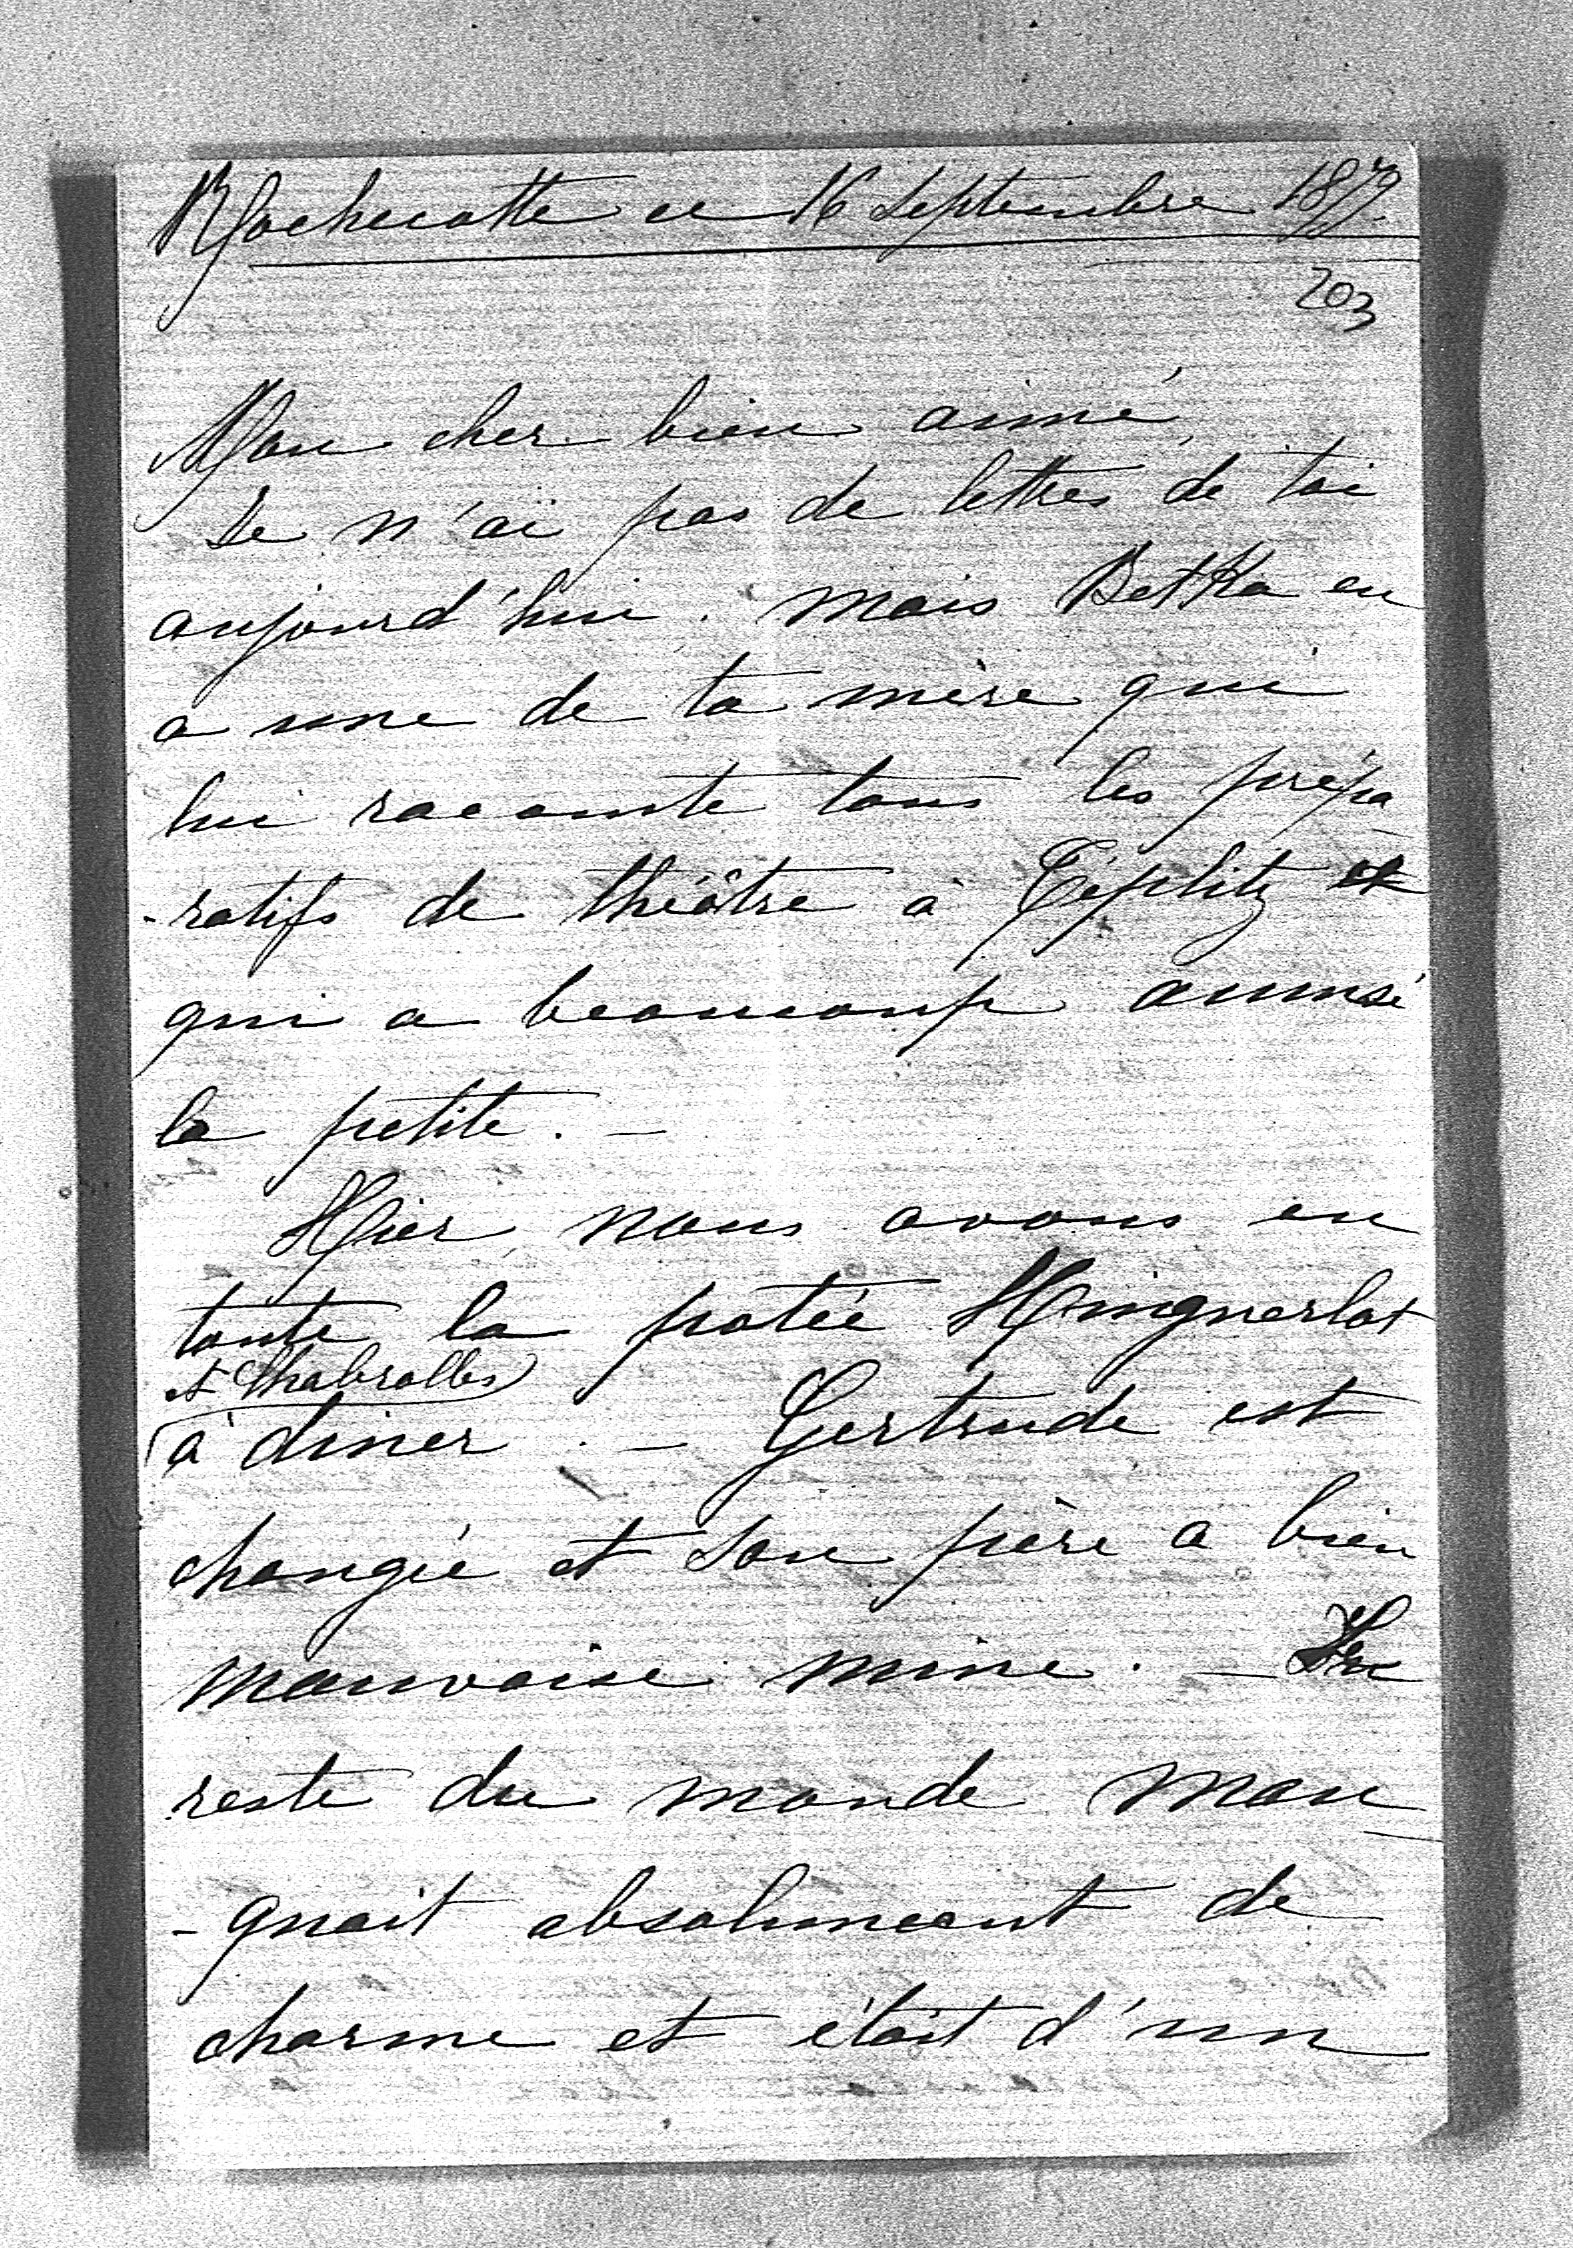 Rochecotte ce 16 Septembre 1879.
203
Mon cher bien aimé,
Je n'ai pas de lettres de toi
aujourd'hui. mais Betka en
a une de ta mère qui
lui raconte tous les prépa
-ratifs de théâtre à Téplitz et
qui a beaucoup amusé
la petite. -
Hier, nous avons eu
toute la patée
et Chabrolles
à diner. - Gertrude est
changée et son père a bien
mauvaise mine. - Le
reste du monde man
-quait absolument de
charme et était d'un